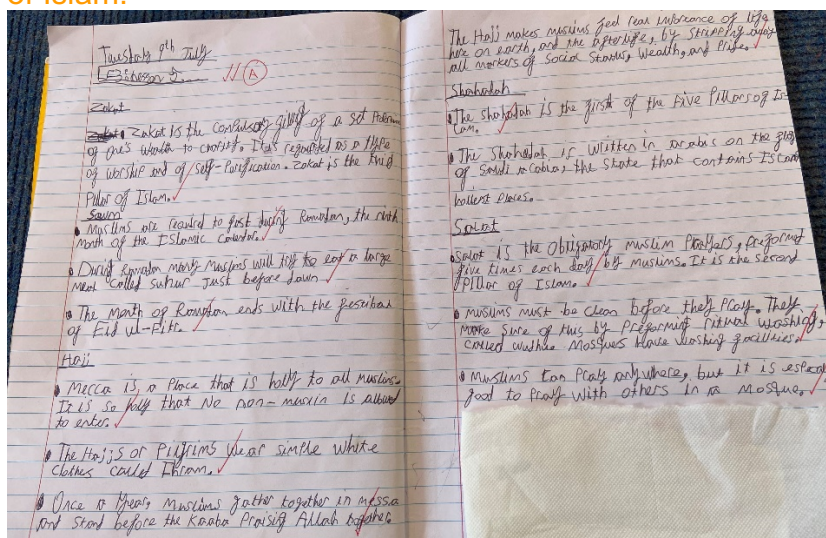 of Islam.
Tuesday 9th July
Lesson 5
A
Zakat
Zakat is the compulsory giving of a set
of one's wealth to charity. It is regarded as a type
of worship and of self-Purification. Zakat is the third
Pillar of Islam.
Saum
Muslims are required to fast during Ramadan, the ninth
month of the Islamic
During Ramadan many Muslims will try to eat a large
meal called suhur just before dawn
The month of ends with the
of Eid ul-Fitr.
Hajj
Mecca is a Place that is holy to all muslims.
It is so holy that No non-muslim is allowed
to enter.
The Hajjs or Pilgrims wear simple white
clothes called Ihram.
Once a year, Muslims gather together in messa
and stand before the Kaaba Praising Allah together.
The Hajj makes muslims feel real of life
here on earth, and the afterlife, by stripping away
all markers of Social Status, wealth, and Pride.
Shahadah
The shahadah is the first of the Five Pillars of Is-
lam.
The shahadah is written in arabic on the flag
of Saudi arabia, the state that contains Islam
holiest places.
Salat
Salat is the obligatory muslim Prayers, Preformed
five times each day by muslims. It is the second
Pillar of Islam.
muslims must be clean before they Pray. They
make sure of this by Preforming ritual washing,
called wushu. Mosques have washing facilities.
Muslims can Pray anywhere, but it is
good to pray with others in a Mosque.